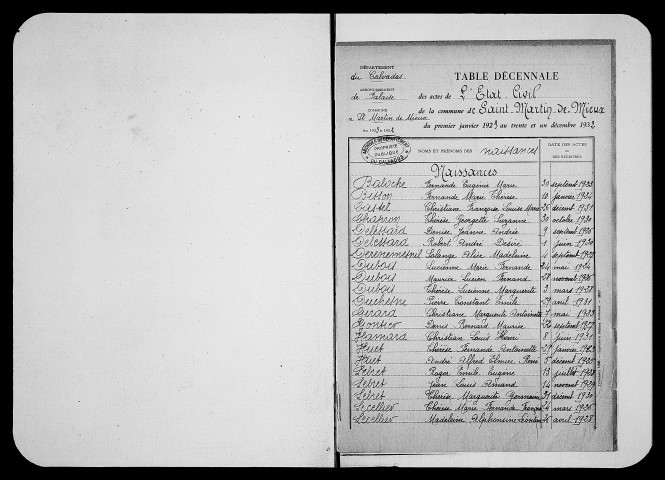 DÉPARTEMENT
du Calvados
ARRONDISSEMENT
de Falaise
COMMUNE
de St Martin de Mieux
TABLE DÉCENNALE
des actes de L'Etat Civil
de la commune de Saint-Martin-de-Mieux
du premier janvier 1923 au trente et un décembre 1932
ARCHIVES DU DÉPARTEMENT
PROPRIÉTÉ PUBLIQUE
DU CALVADOS
NOMS ET PRÉNOMS DES naissances
DATE DES ACTES
DES REGISTRES
Naissances
Fernande Eugénie Marie 30 septemb
Bisson Fernande Marie Thérèse 10 janvier 1924
Castel Christiane Françoise Louise Marie 1931
Chapron Thérèse Georgette Suzanne 30 octobre 1930
Deléssard Denise Jeanne Andrée 9 septemb 1926
Delessard Robert André Désiré 1 juin 1930
Solange Alice Madeleine 4 septemb 1928
Dubois Lucienne Marie Fernande 24 mai 1924
Dubois Maurice Lucien Fernand 1926
Dubois Thérèse Lucienne Marguerite 3 mars 1928
Duchesne Pierre Constant Emile 29 avril 1931
Gérard Christiane Marguerite Antoinette 7 mai
Gontier Denis Bernard Maurice septemb 1927
Hamard Christian Louis Henri 8 juin 1931
Huet Thérèse Fernande Antoinette janvier
Huet André Alfred René
Lebret Roger Emile Eugène 13 juillet 1928
Lebret Jean Louis Armand 14 novemb 1929
Lebret Thérèse Marguerite Germaine décemb 1930
Lecellier Thérèse Marie Fernande mars 1926
Lecellier Madeleine Alphonsine avril 1928